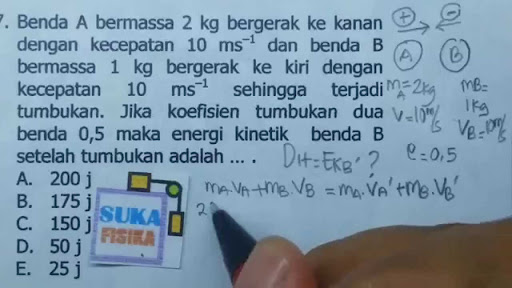 7. Benda A bermassa 2 kg bergerak ke kanan
dengan kecepatan 10 ms⁻¹ dan benda B
bermassa 1 kg bergerak ke kiri dengan
kecepatan 10 ms⁻¹ sehingga terjadi
tumbukan. Jika koefisien tumbukan dua
benda 0,5 maka energi kinetik benda B
setelah tumbukan adalah ... .
A. 200 j
B. 175 j
C. 150 j
D. 50 j
E. 25 j
SUKA
FISIKA
+ -
A B
mA=2kg mB=
1kg
V=10m/s VB=10m/s
Dit=EKB'? e=0,5
mA.VA+mB.VB=mA.VA'+mB.VB'
2